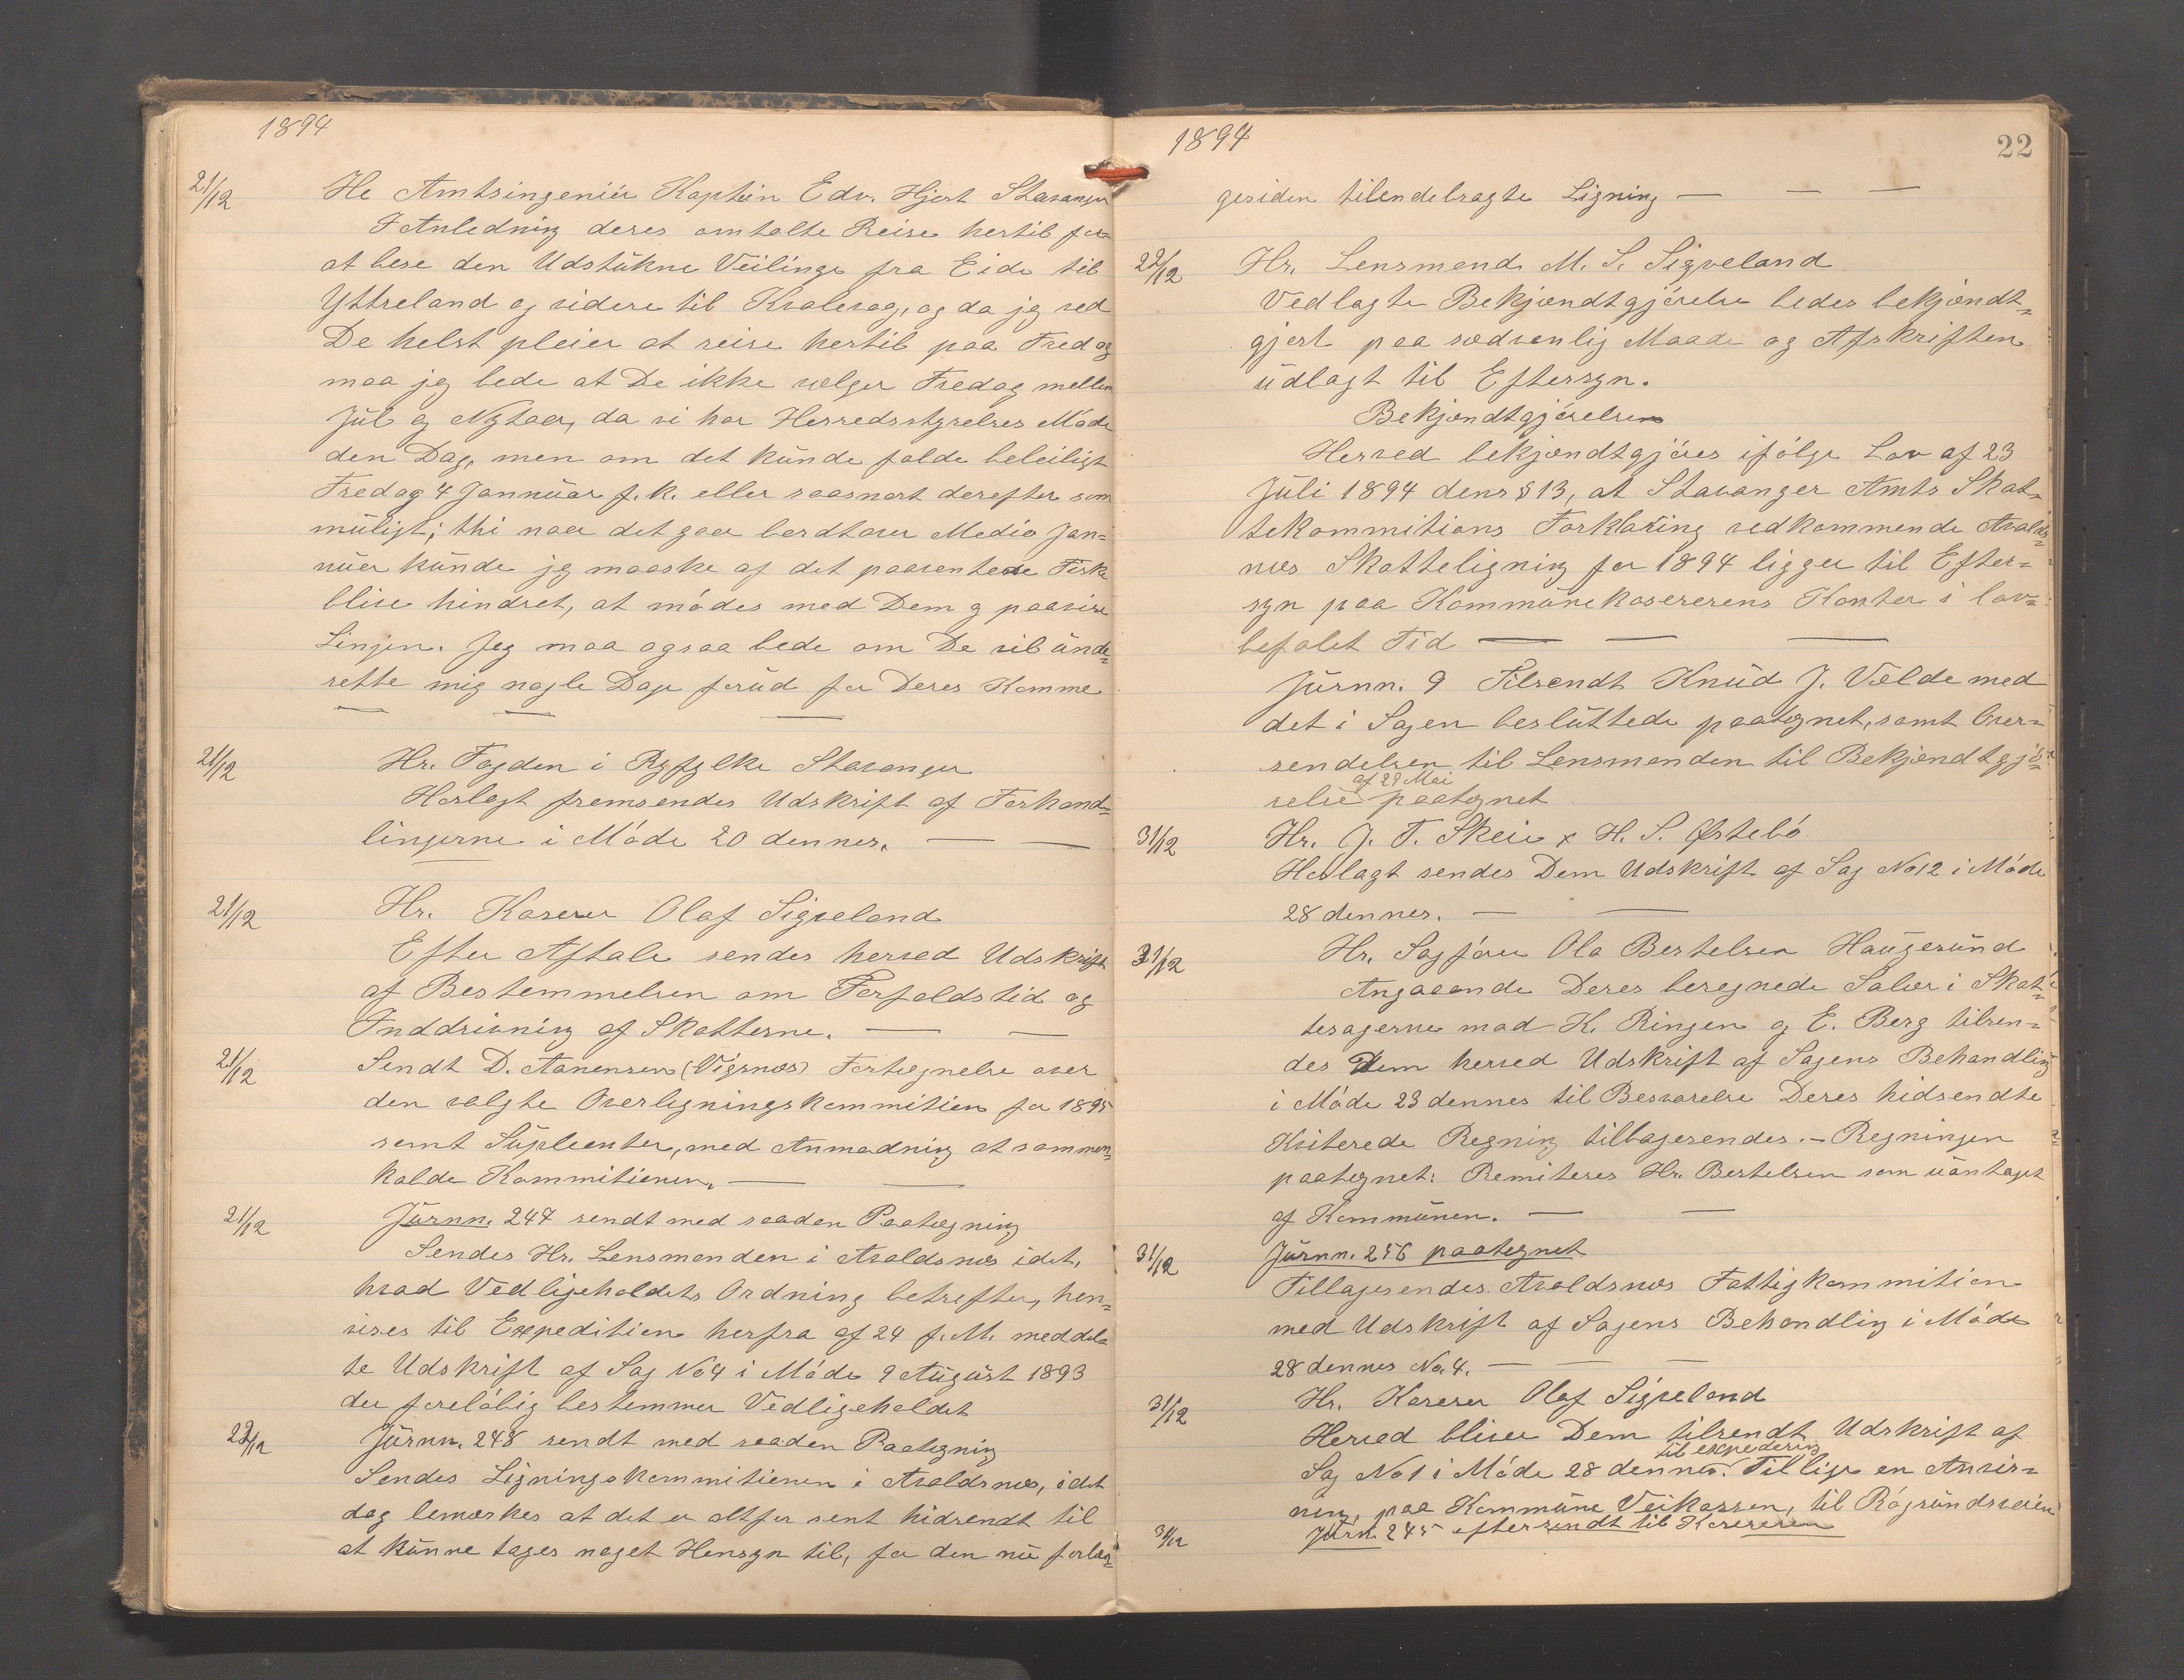 1894
21/12 Hr Amtsingeniør Kaptein Edv. Hjort Stavanger
I Anledning deres omtalte Reise hertil for
at bese den Udstukne Veilinge fra Eide til
Yttreland og videre til Kvalevag, og da jeg ved
De helst pleier at reise hertil paa Fredag
maa jeg bede at De ikke vælger Fredag mellem
Jul og Nytaar, da vi har Herredsstyrelses Møde
den Dag, men om det kunde falde beleiligt
Fredag 4 Jannuar f. k. eller saasnart derefter som
muligt; thi naar det gaar bordtover Medio Jan-
nuar kunde jeg maaske af det paaventede Fiske
blive hindret, at mødes med Dem og paavise
Linjen. Jeg maa ogsaa bede om De vil unde-
rette mig nogle Dage forud for Deres Komme
21/12 Hr. Fogden i Ryfylke Stavanger
Herlagt fremsendes Udskrift af Forhand-
lingerne i Møde 20 dennes.
21/12 Hr. Kaserer Olaf Sigveland
Efter Aftale sendes herved Udskrift
af Bestemmelsen om Forfaldstid og
Inddrivning af Skatterne.
21/12 Sendt D. Aanensen (Vigsnæs) Fortegnelse over
den valgte Overligningskommition for 1895
samt Supleanter, med Anmodning at sammen-
kalde Kommitionen.
21/12 Journ. 247 sendt med saadan Paategning
Sendes Hr. Lensmanden i Avaldsnæs idet,
hvad Vedligeholdets Ordning betræffer, hen-
vises til Expedition herfra af 24 f. M. meddel-
te Udskrift af Sag No 4 i Møde 9 August 1893
der foreløbig bestemmer Vedligeholdet
22/12 Journ. 248 sendt med saadan Paategning
Sendes Ligningskommitionen i Avaldsnæs, idet
dog bemærkes at det er altfor sent hidsendt til
at kunne tages noget Hensyn til, for den nu forlæn-
1894
22
gesiden tilendebragte Ligning
22/12 Hr. Lensmand M. S. Sigveland
Vedlagte Bekjændtgjørelse bedes bekjendt-
gjort paa sædvanlig Maade og Afskriften
udlagt til Eftersyn.
Bekjændtgjørelse
Herved bekjændtgjøres ifølge Lov af 23
Juli 1894 dens § 13, at Stavanger Amts Skat-
tekommitions Forklaring vedkommende Avalds-
næs Skatteligning for 1894 ligger til Efter-
syn paa Kommunekasererens Kontor i lov-
befalet Tid
Journ. 9 Tilsendt Knud J. Valde med
det i Sagen besluttede paategnet, samt Over-
sendelsen til Lensmanden til Bekjændtgjø-
af 29 Mai
relse paategnet
31/12 Hr. J. T. Skeie x H. S. Østebø
Herlagt sendes Dem Udskrift af Sag No 12 i Møde
28 dennes.
31/12 Hr. Sagfører Ola Bertelsen Haugesund
Angaaende Deres beregnede Salær i Skat-
tesagerne mod K. Ringen og E. Berg tilsen-
des Dem herved Udskrift af Sagens Behandling
i Møde 23 dennes til Besvarelse Deres hidsendte
Kviterede Regning tilbagesendes. – Regningen
paategnet: Remiteres Hr. Bertelsen som uantaget
af Kommunen.
31/12 Journ. 256 paategnet
Tilbagesendes Avaldsnæs Fattigkommition
med Udskrift af Sagens Behandling i Møde
28 dennes No. 4.
31/12 Hr. Kaserer Olaf Sigveland
Herved bliver Dem tilsendt Udskrift af
til expedering
Sag No 1 i Møde 28 dennes. Tillige en Anvis-
ning paa Kommune Veikassen, til Røgsundsveien
31/12 Journ. 245 eftersendt til Kasereren